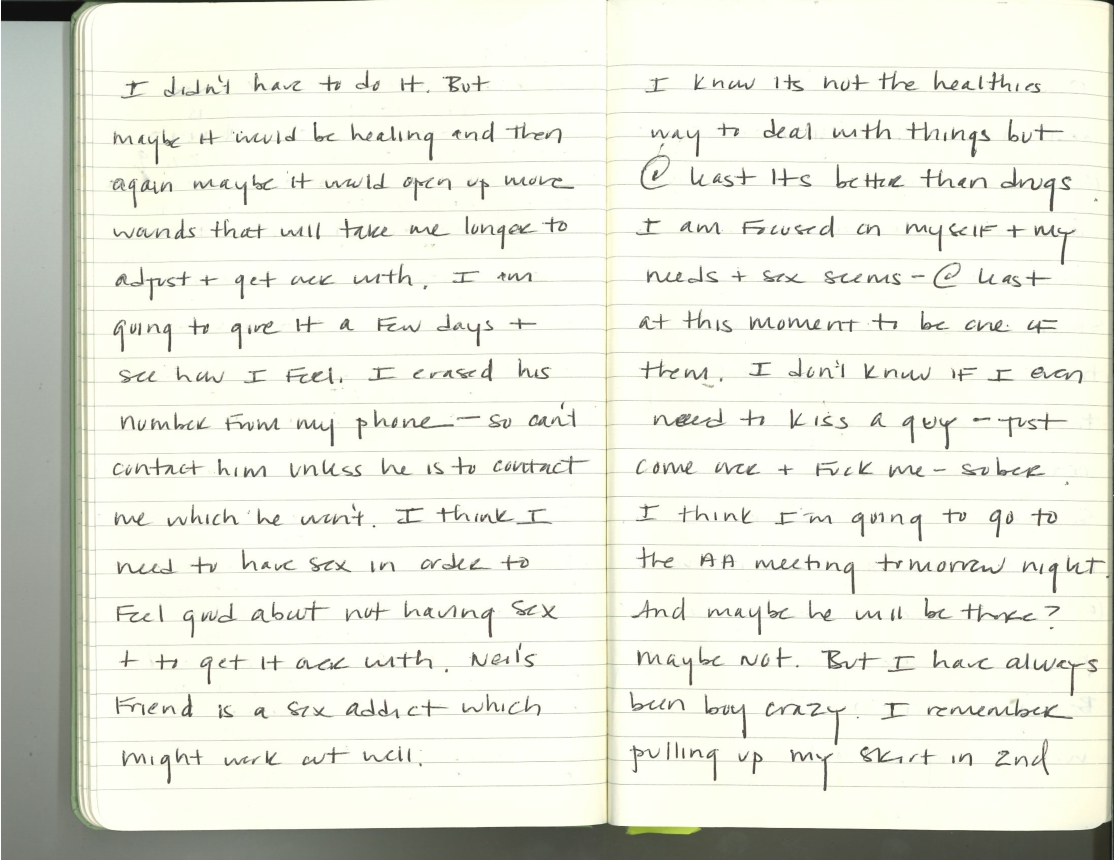 I didn't have to do it. But
maybe it would be healing and then
again maybe it would open up more
wounds that will take me longer to
adjust + get over with. I am
going to give it a few days +
see how I feel. I erased his
number from my phone - so can't
contact him unless he is to contact
me which he won't. I think I
need to have sex in order to
feel good about not having sex
+ to get it over with. Neil's
friend is a sex addict which
might work out well.
I know its not the healthies
way to deal with things but
@ least its better than drugs
I am focused on myself + my
needs + sex seems - @ least
at this moment to be one of
them. I don't know if I even
need to kiss a guy - just
come over + fuck me - sober.
I think I'm going to go to
the AA meeting tomorrow night.
And maybe he will be there?
maybe not. But I have always
been boy crazy. I remember
pulling up my skirt in 2nd